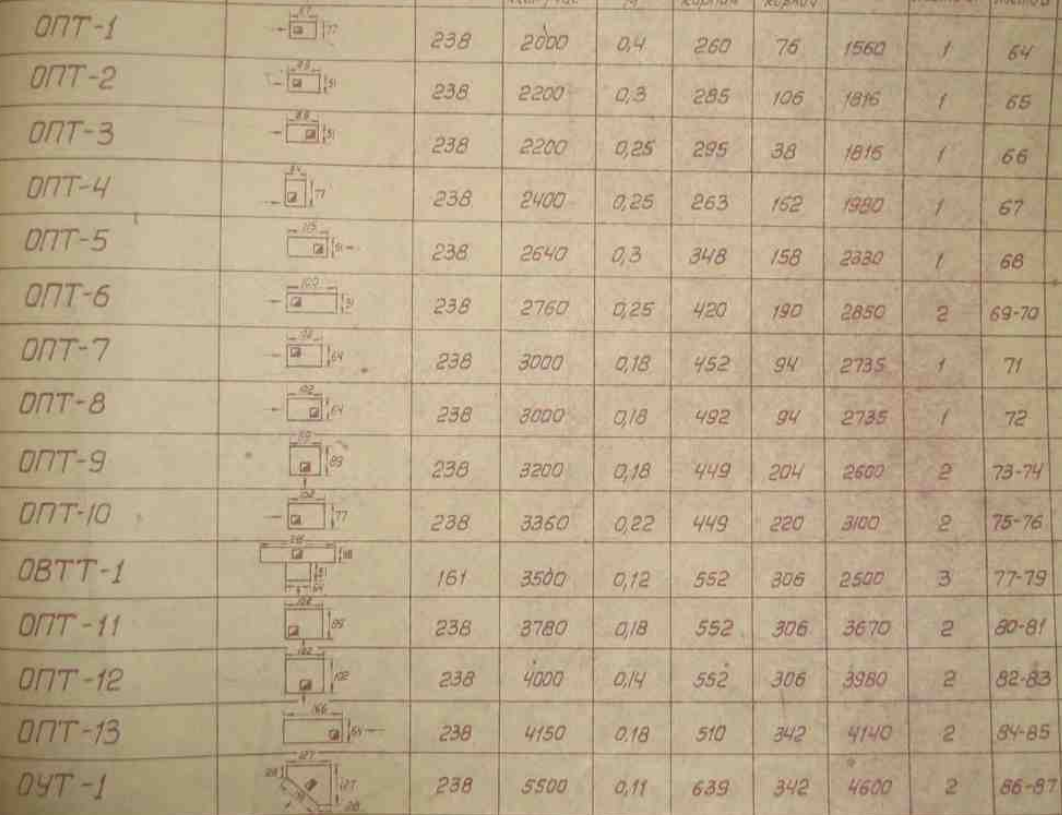 ОПТ-1 77 238 2000 0,4 260 76 1560 1 64
ОПТ-2 51 238 2200 0,3 285 106 1816 1 65
ОПТ-3 51 238 2200 0,25 295 38 1816 1 66
ОПТ-4 77 238 2400 0,25 263 152 1980 1 67
ОПТ-5 115 51 238 2640 0,3 348 158 2330 1 68
ОПТ-6 100 51 238 2760 0,25 420 190 2850 2 69-70
ОПТ-7 102 64 238 3000 0,18 452 94 2735 1 71
ОПТ-8 102 64 238 3000 0,18 492 94 2735 1 72
ОПТ-9 89 89 238 3200 0,18 449 204 2600 2 73-74
ОПТ-10 102 77 238 3360 0,22 449 220 3100 2 75-76
ОВТТ-1 161 3500 0,12 552 306 2500 3 77-79
ОПТ-11 102 89 238 3780 0,18 552 306 3670 2 80-81
ОПТ-12 102 102 238 4000 0,14 552 306 3980 2 82-83
ОПТ-13 166 64 238 4150 0.18 510 342 4140 2 84-85
ОУТ-1 127 127 238 5500 0,11 639 342 4600 2 86-87